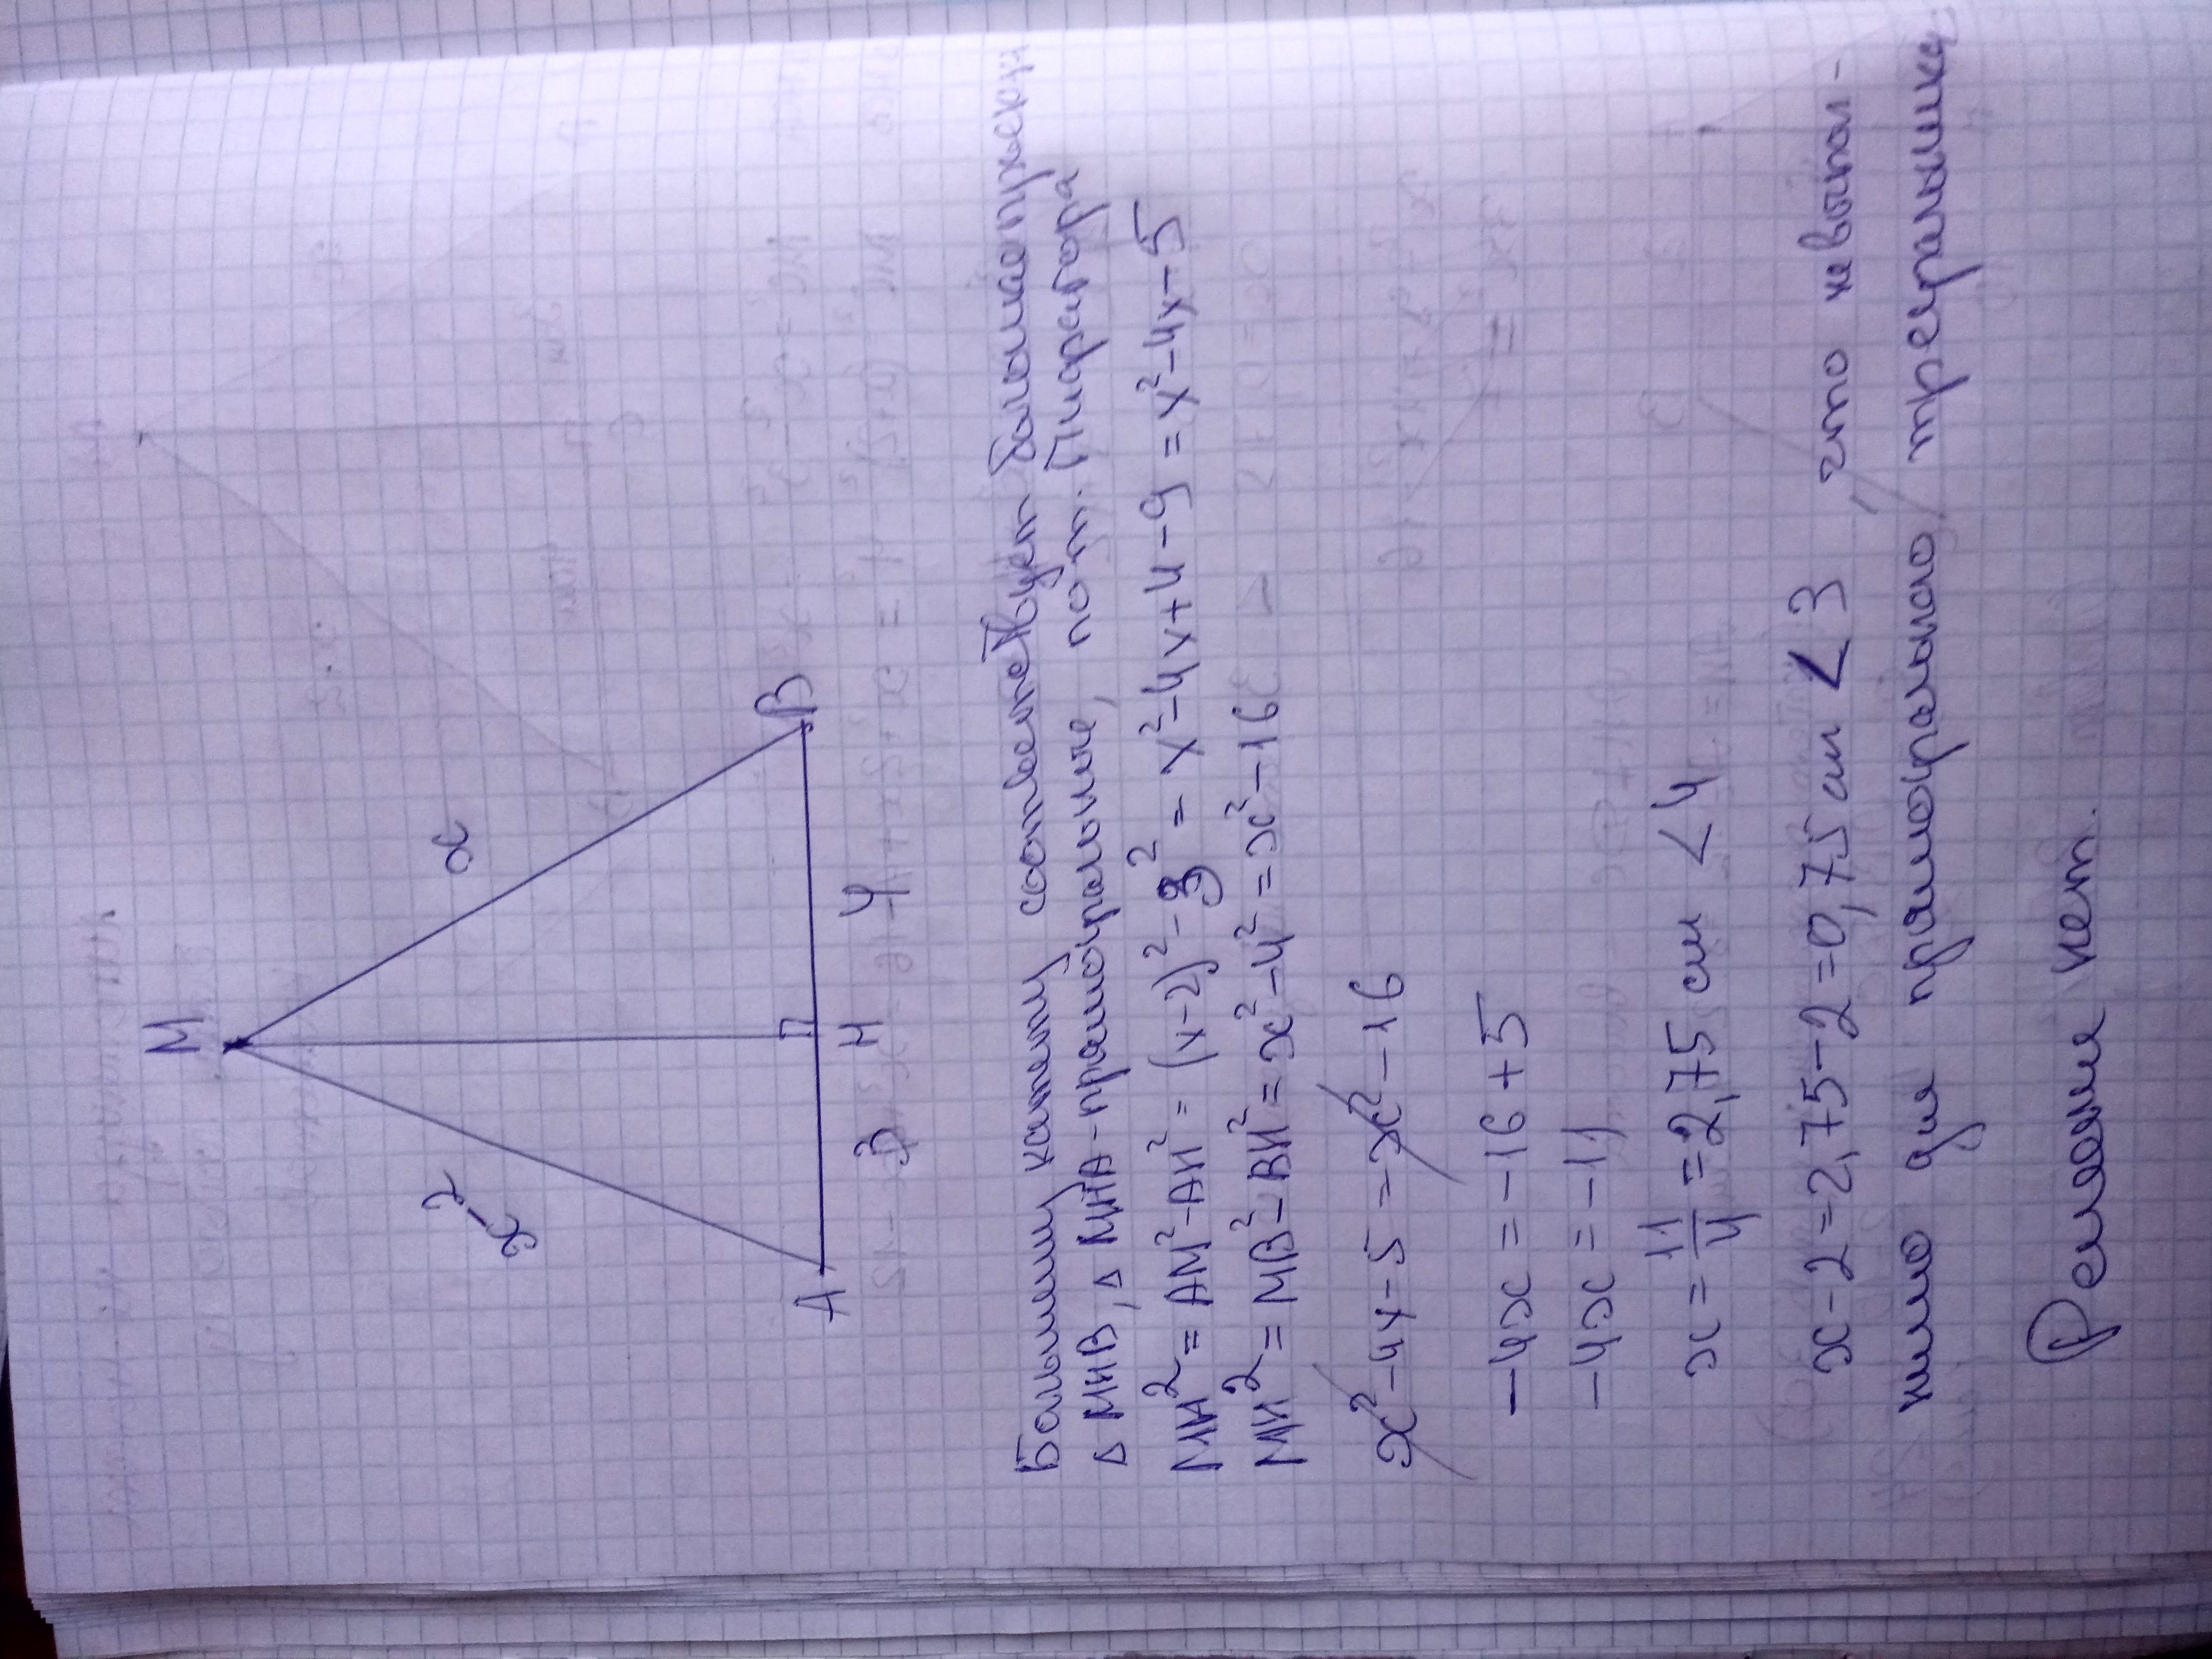 M
x-2
x
A
3
H
4
B
Большему катету соответствует большая проекция
△ MHB, △ MHA - прямоугольные, по т. Пифагора
MH² = AM² - AH² = (x-2)² - 3² = x² - 4x + 4 - 9 = x² - 4x - 5
MH² = MB² - BH² = x² - 4² = x² - 16
x² - 4x - 5 = x² - 16
-4x = -16 + 5
-4x = -11
x = 11/4 = 2,75 см < 4
x - 2 = 2,75 - 2 = 0,75 см < 3 , что невыпол-
нимо для прямоугольного треугольника
Решения нет.